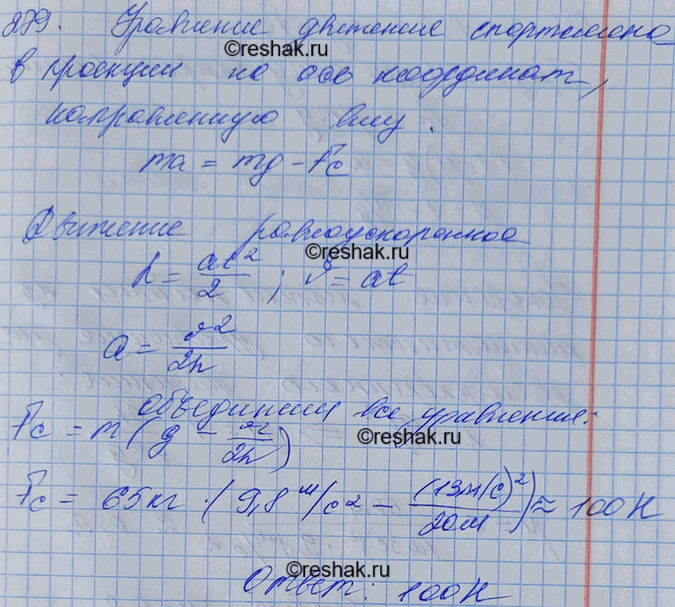 279. Уравнение движение спортсмена
©reshak.ru
в проекции на ось координат,
направленную вниз.
ma = mg - Fc
Движение равноускоренное
©reshak.ru
h = at²/2 ; v = at
a = v²/2h
©reshak.ru
объединим все уравнения:
Fc = m(g - v²/2h)
Fc = 65кг · (9,8 м/с² - (13м/с)²/20м) ≈ 100Н
©reshak.ru
Ответ: 100Н